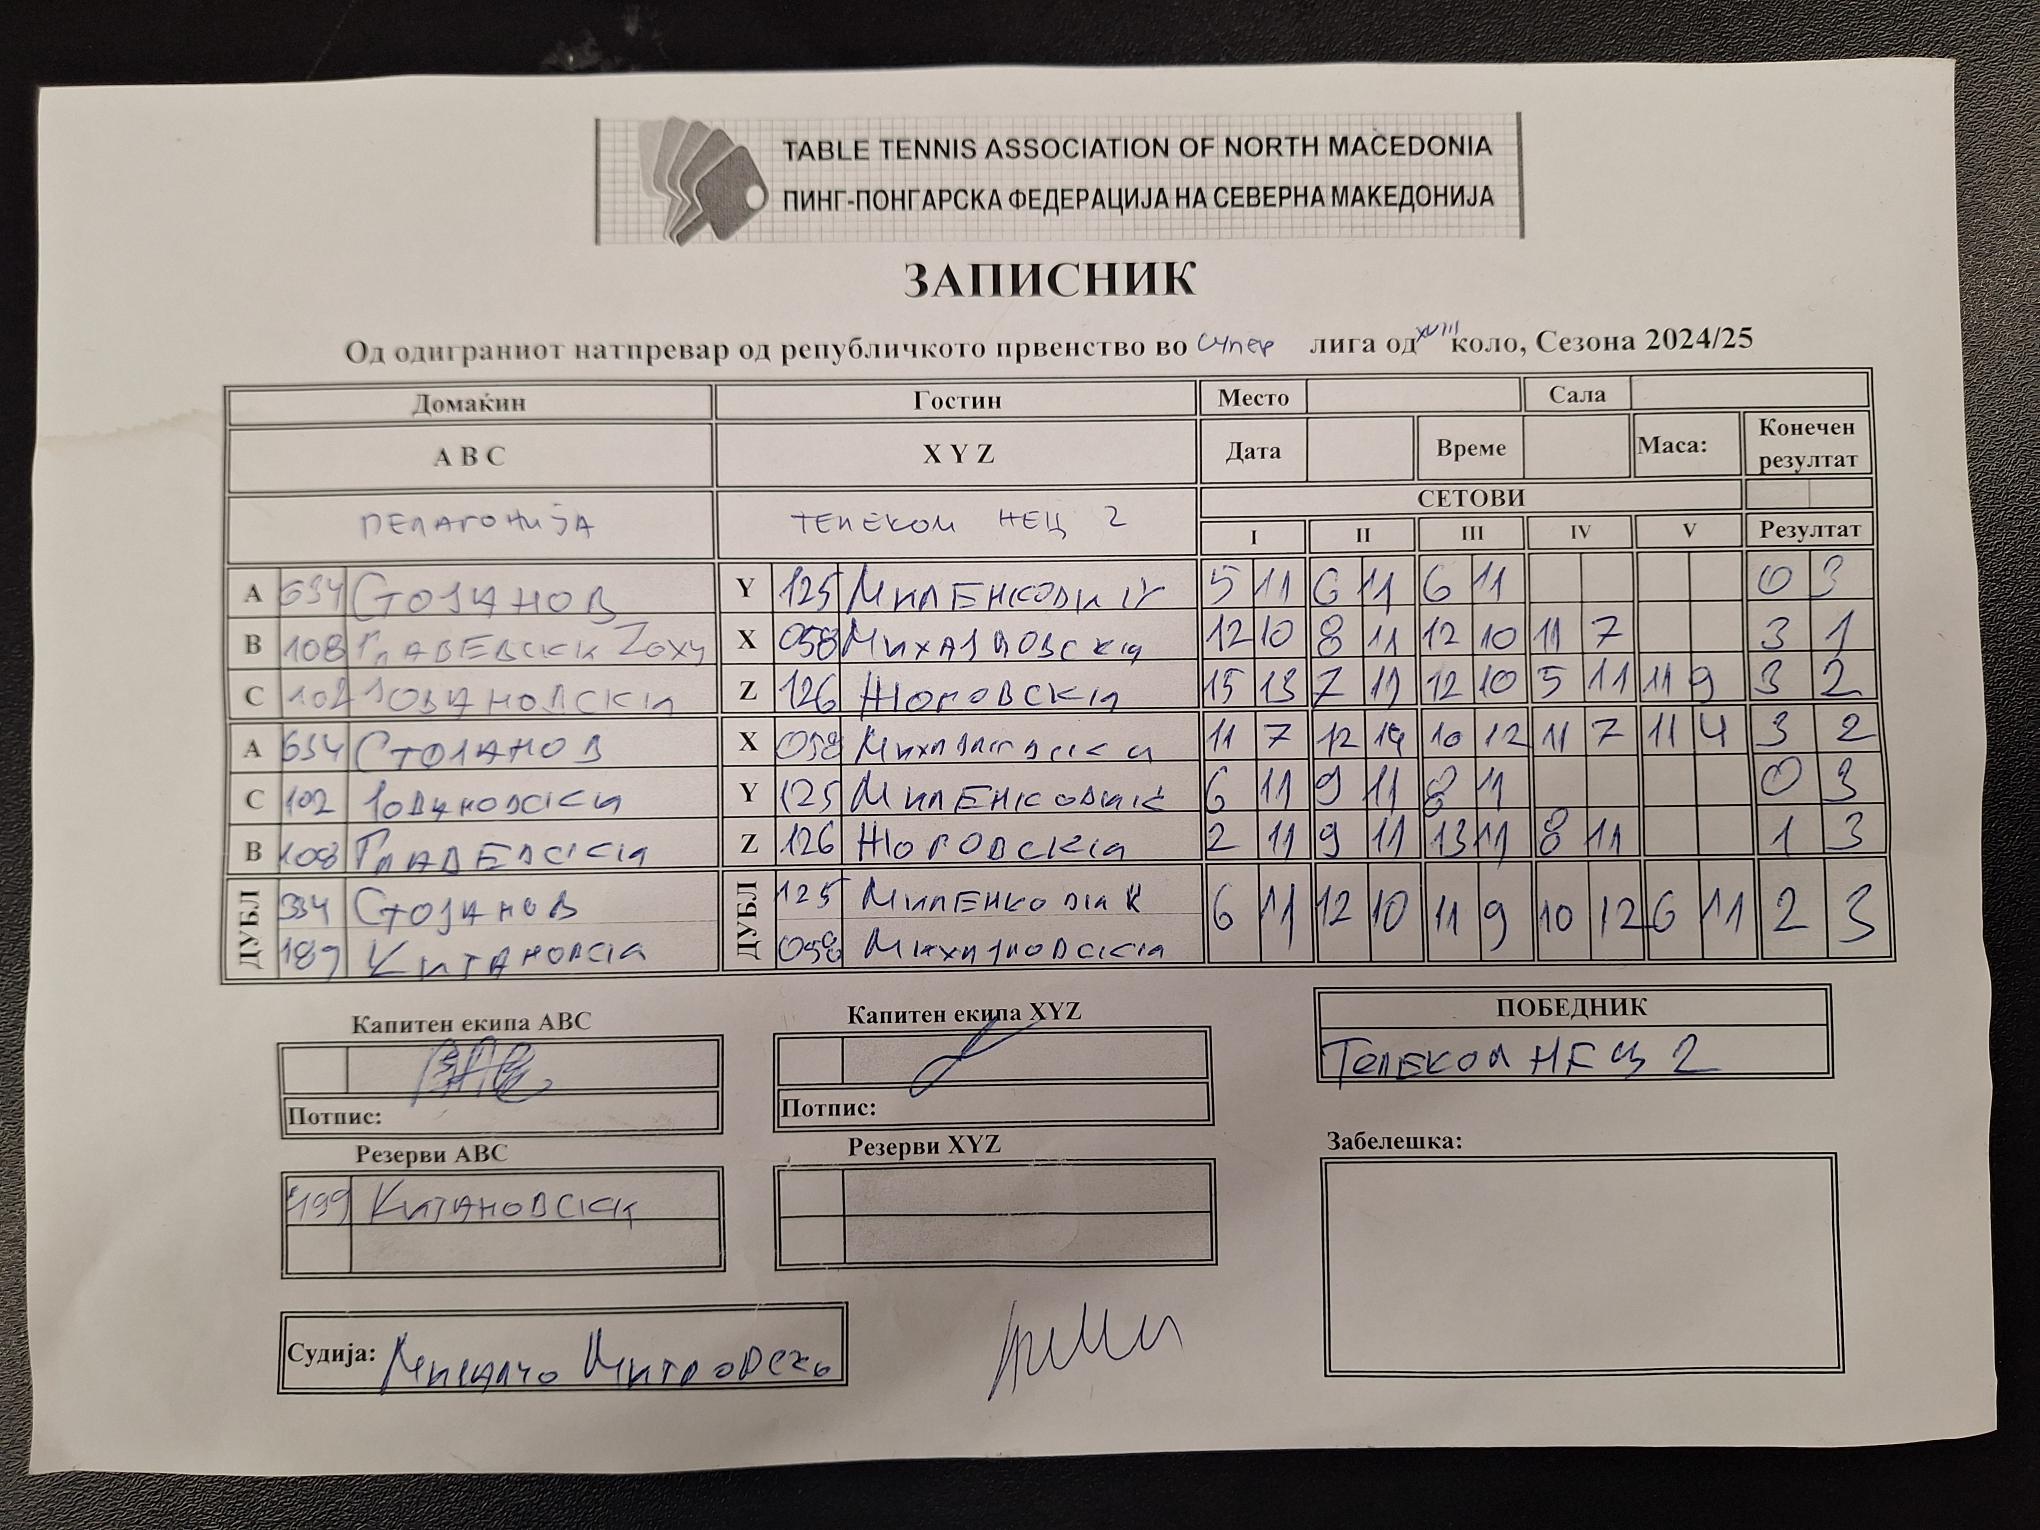 TABLE TENNIS ASSOCIATION OF NORTH MACEDONIA
ПИНГ-ПОНГАРСКА ФЕДЕРАЦИЈА НА СЕВЕРНА МАКЕДОНИЈА
ЗАПИСНИК
Од одиграниот натпревар од републичкото првенство во супер лига од XVIII коло, Сезона 2024/25
Домаќин Гостин Место Сала
A B C X Y Z Дата Време Маса: Конечен резултат
ПЕЛАГОНИЈА ТЕЛЕКОМ НЕЦ 2 СЕТОВИ
I II III IV V Резултат
A 634 СТОЈАНОВ Y 125 МИЛЕНКОВИЌ 5 11 6 11 6 11 0 3
B 108 ГЛАВЕВСКИ X 058 МИХАЈЛОВСКИ 12 10 8 11 12 10 11 7 3 1
C 102 ЈОВАНОВСКИ Z 126 ЖОГОВСКИ 15 13 7 11 12 10 5 11 11 9 3 2
A 634 СТОЈАНОВ X 058 11 7 12 14 10 12 11 7 11 4 3 2
C 102 ЈОВАНОВСКИ Y 125 МИЛЕНКОВИЌ 6 11 9 11 8 11 0 3
B 108 ГЛАВЕВСКИ Z 126 ЖОГОВСКИ 2 11 9 11 13 11 8 11 1 3
ДУБЛ СТОЈАНОВ ДУБЛ 125 МИЛЕНКОВИЌ 6 11 12 10 11 9 10 12 6 11 2 3
189 КИТАНОВСКИ 058 МИХАЈЛОВСКИ
Капитен екипа ABC Капитен екипа XYZ ПОБЕДНИК
ТЕЛЕКОМ НЕЦ 2
Потпис: Потпис:
Резерви ABC Резерви XYZ Забелешка:
199 КИТАНОВСКИ
Судија: Митровски